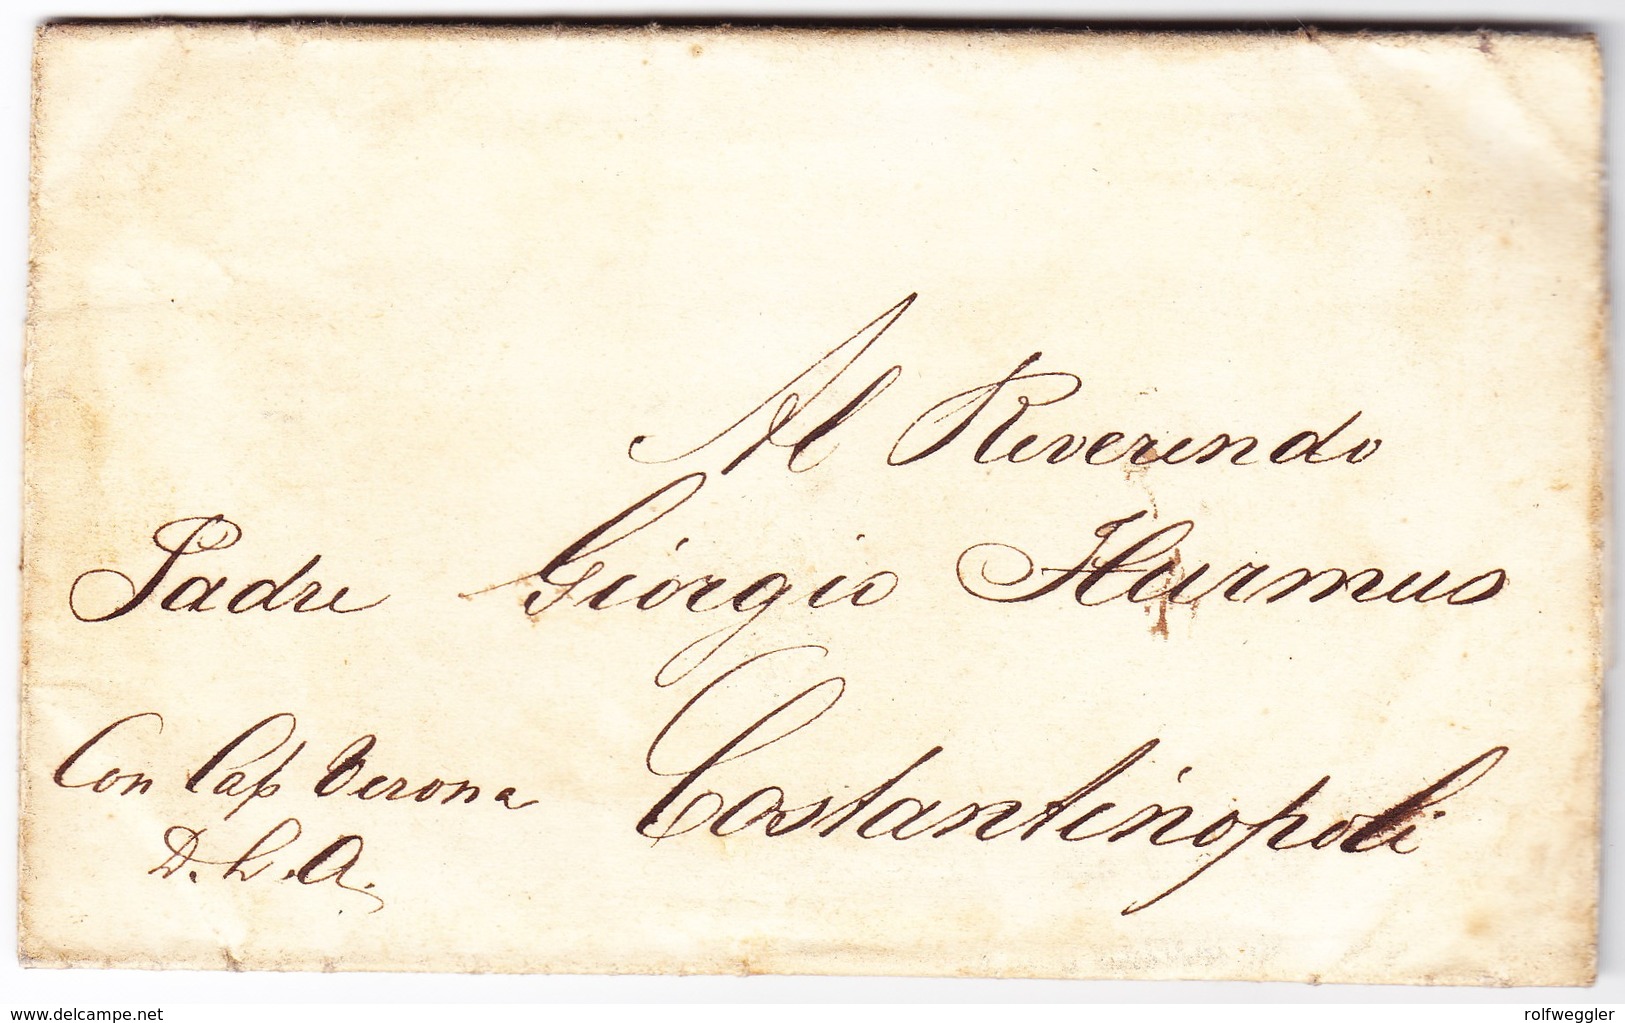 Al Reverendo
Padre Giorgio Hurmus
Costantinopoli
Con Cap Verona
D. L. A.
delcampe.net
rolfweggler